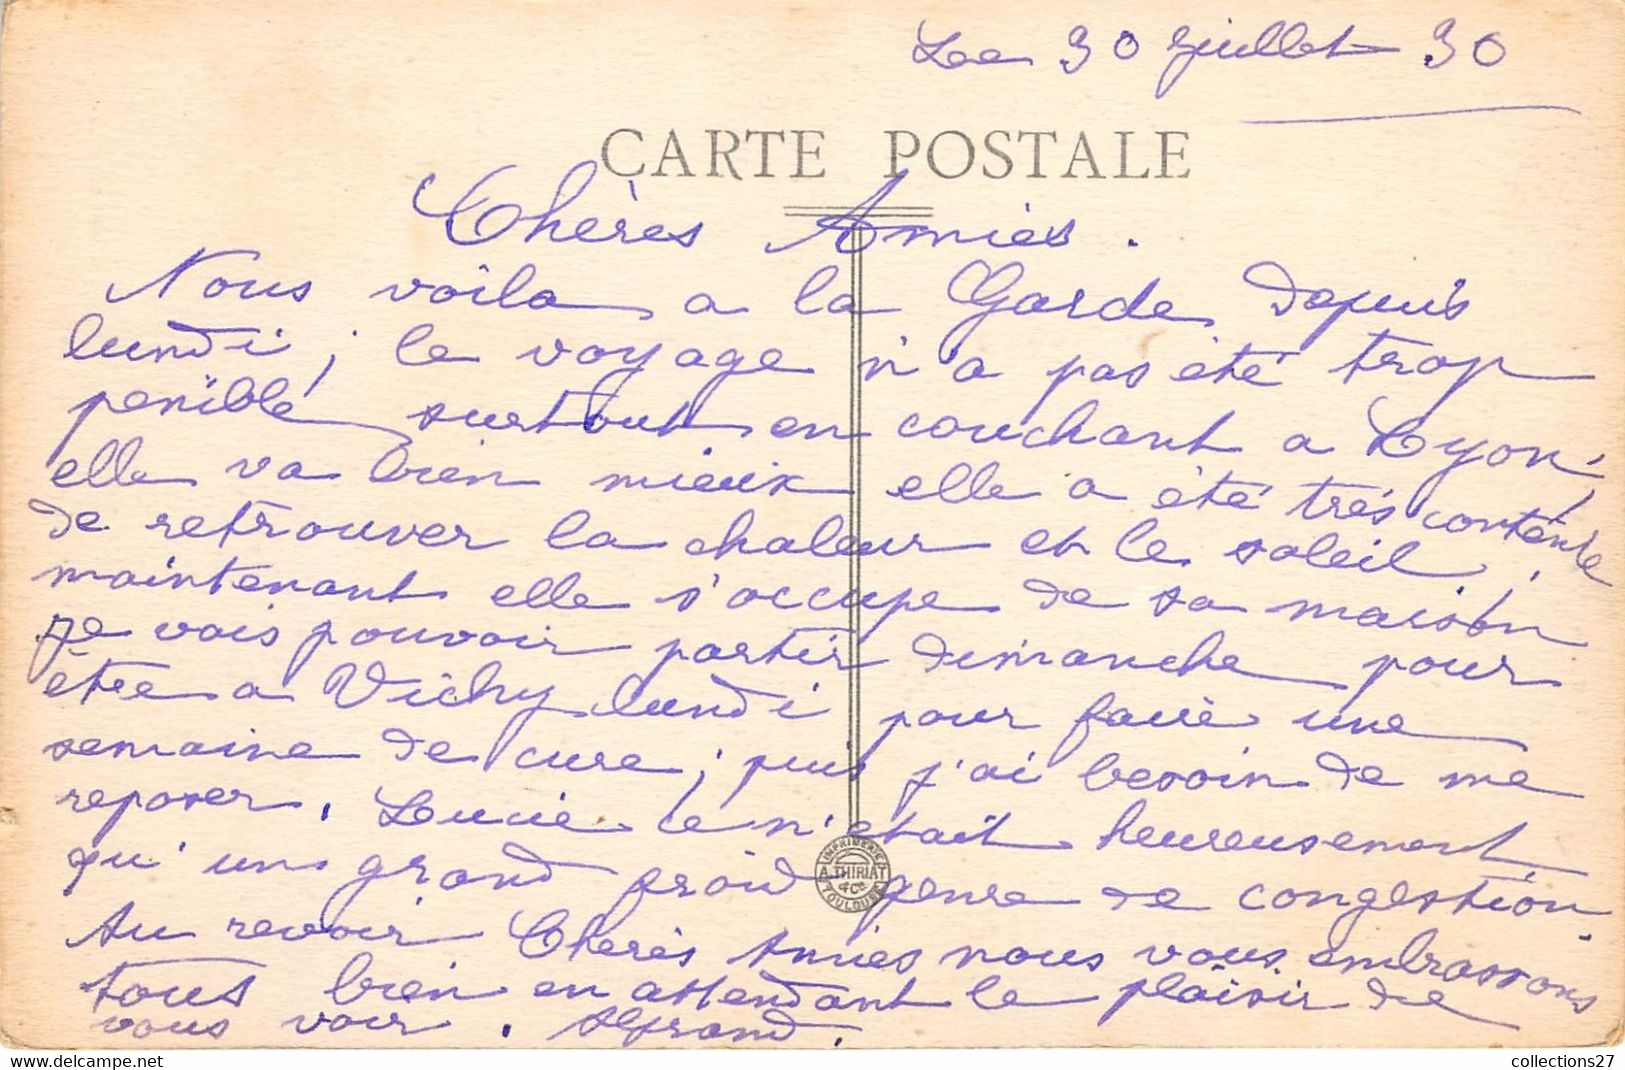 Le 30 juillet 30
CARTE POSTALE
Chères Amies.
Nous voila a la Garde depuis
lundi ; le voyage n'a pas été trop
penible surtout en couchant a Lyon,
elle va bien mieux elle a été très contente
de retrouver la chaleur et le soleil,
maintenant elle s'occupe de sa maison
je vais pouvoir partir dimanche pour
être a Vichy lundi pour faire une
semaine de cure ; puis j'ai besoin de me
reposer. Lucie ce n'etait heureusement
qu'un grand froid genre de congestion.
Au revoir Cheres Amies nous vous embrassons
tous bien en attendant le plaisir de
vous voir.
IMPRIMERIE A. THIRIAT & Cie TOULOUSE
collections27